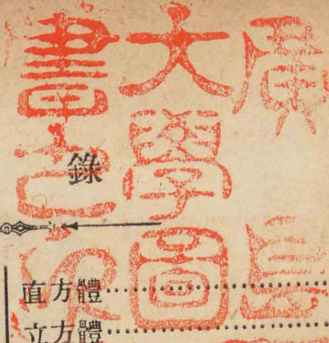 廣島
大學圖
書之印
錄
直方體
立方體